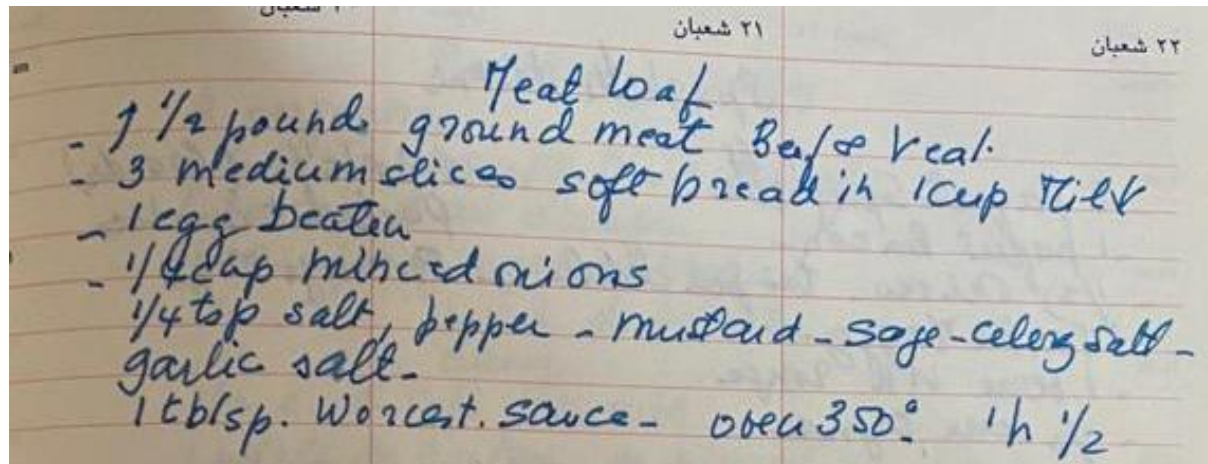 شعبان
٢١ شعبان
٢٢ شعبان
Meat loaf
- 1 1/2 pound ground meat Beef & Veal.
- 3 medium slices soft bread in 1 cup Milk
- 1 egg beaten
- 1/4 cup minced onions
1/4 tsp salt, pepper - mustard - sage - celery salt -
garlic salt -
1 tblsp. Worcest. sauce - oven 350° 1h 1/2